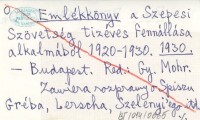 Emlékkönyv a Szepesi
Szövetség tízéves fennállása
alkalmából 1920-1930. 1930.
— Budapest. Red: Gy. Mohr.
Zawiera rozprawy o Spiszu
Gréba, Lerscha, Szelényi itd